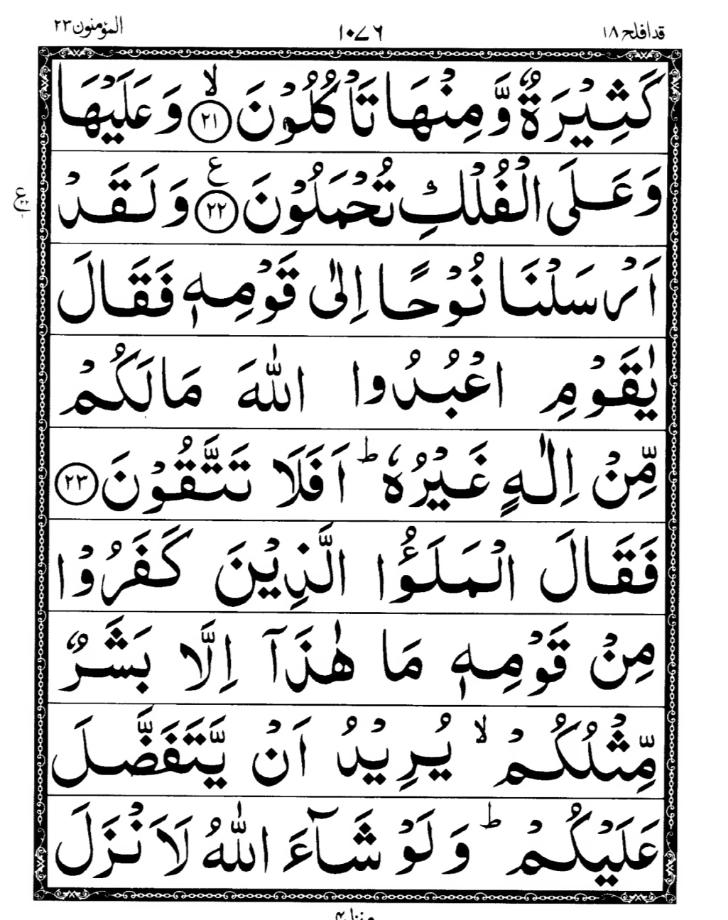 قد افلح ١٨ ١٠٧٦ المؤمنون ٢٣
كَثِيْرَةٌ وَّ مِنْهَا تَاْكُلُوْنَ ۙ﴿٢١﴾ وَ عَلَيْهَا
وَ عَلَى الْفُلْكِ تُحْمَلُوْنَ ﴿٢٢﴾ ع وَ لَقَدْ
اَرْسَلْنَا نُوْحًا اِلٰى قَوْمِهٖ فَقَالَ
يٰقَوْمِ اعْبُدُوا اللّٰهَ مَا لَكُمْ
مِّنْ اِلٰهٍ غَيْرُهٗ ؕ اَفَلَا تَتَّقُوْنَ ﴿٢٣﴾
فَقَالَ الْمَلَؤُا الَّذِيْنَ كَفَرُوْا
مِنْ قَوْمِهٖ مَا هٰذَاۤ اِلَّا بَشَرٌ
مِّثْلُكُمْ ۙ يُرِيْدُ اَنْ يَّتَفَضَّلَ
عَلَيْكُمْ ؕ وَ لَوْ شَآءَ اللّٰهُ لَاَنْزَلَ